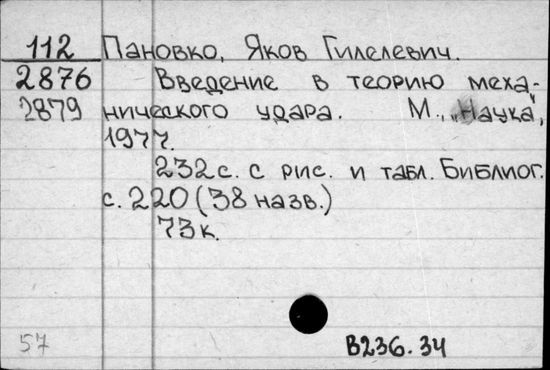 112 Пановко, Яков Гилелевич.
2876 Введение в теорию меха-
2879 нического удара. М., „Наука",
1977.
232 с. с рис. и табл. Библиог.
с. 220 (38 назв.)
73 к.
57 В236.34